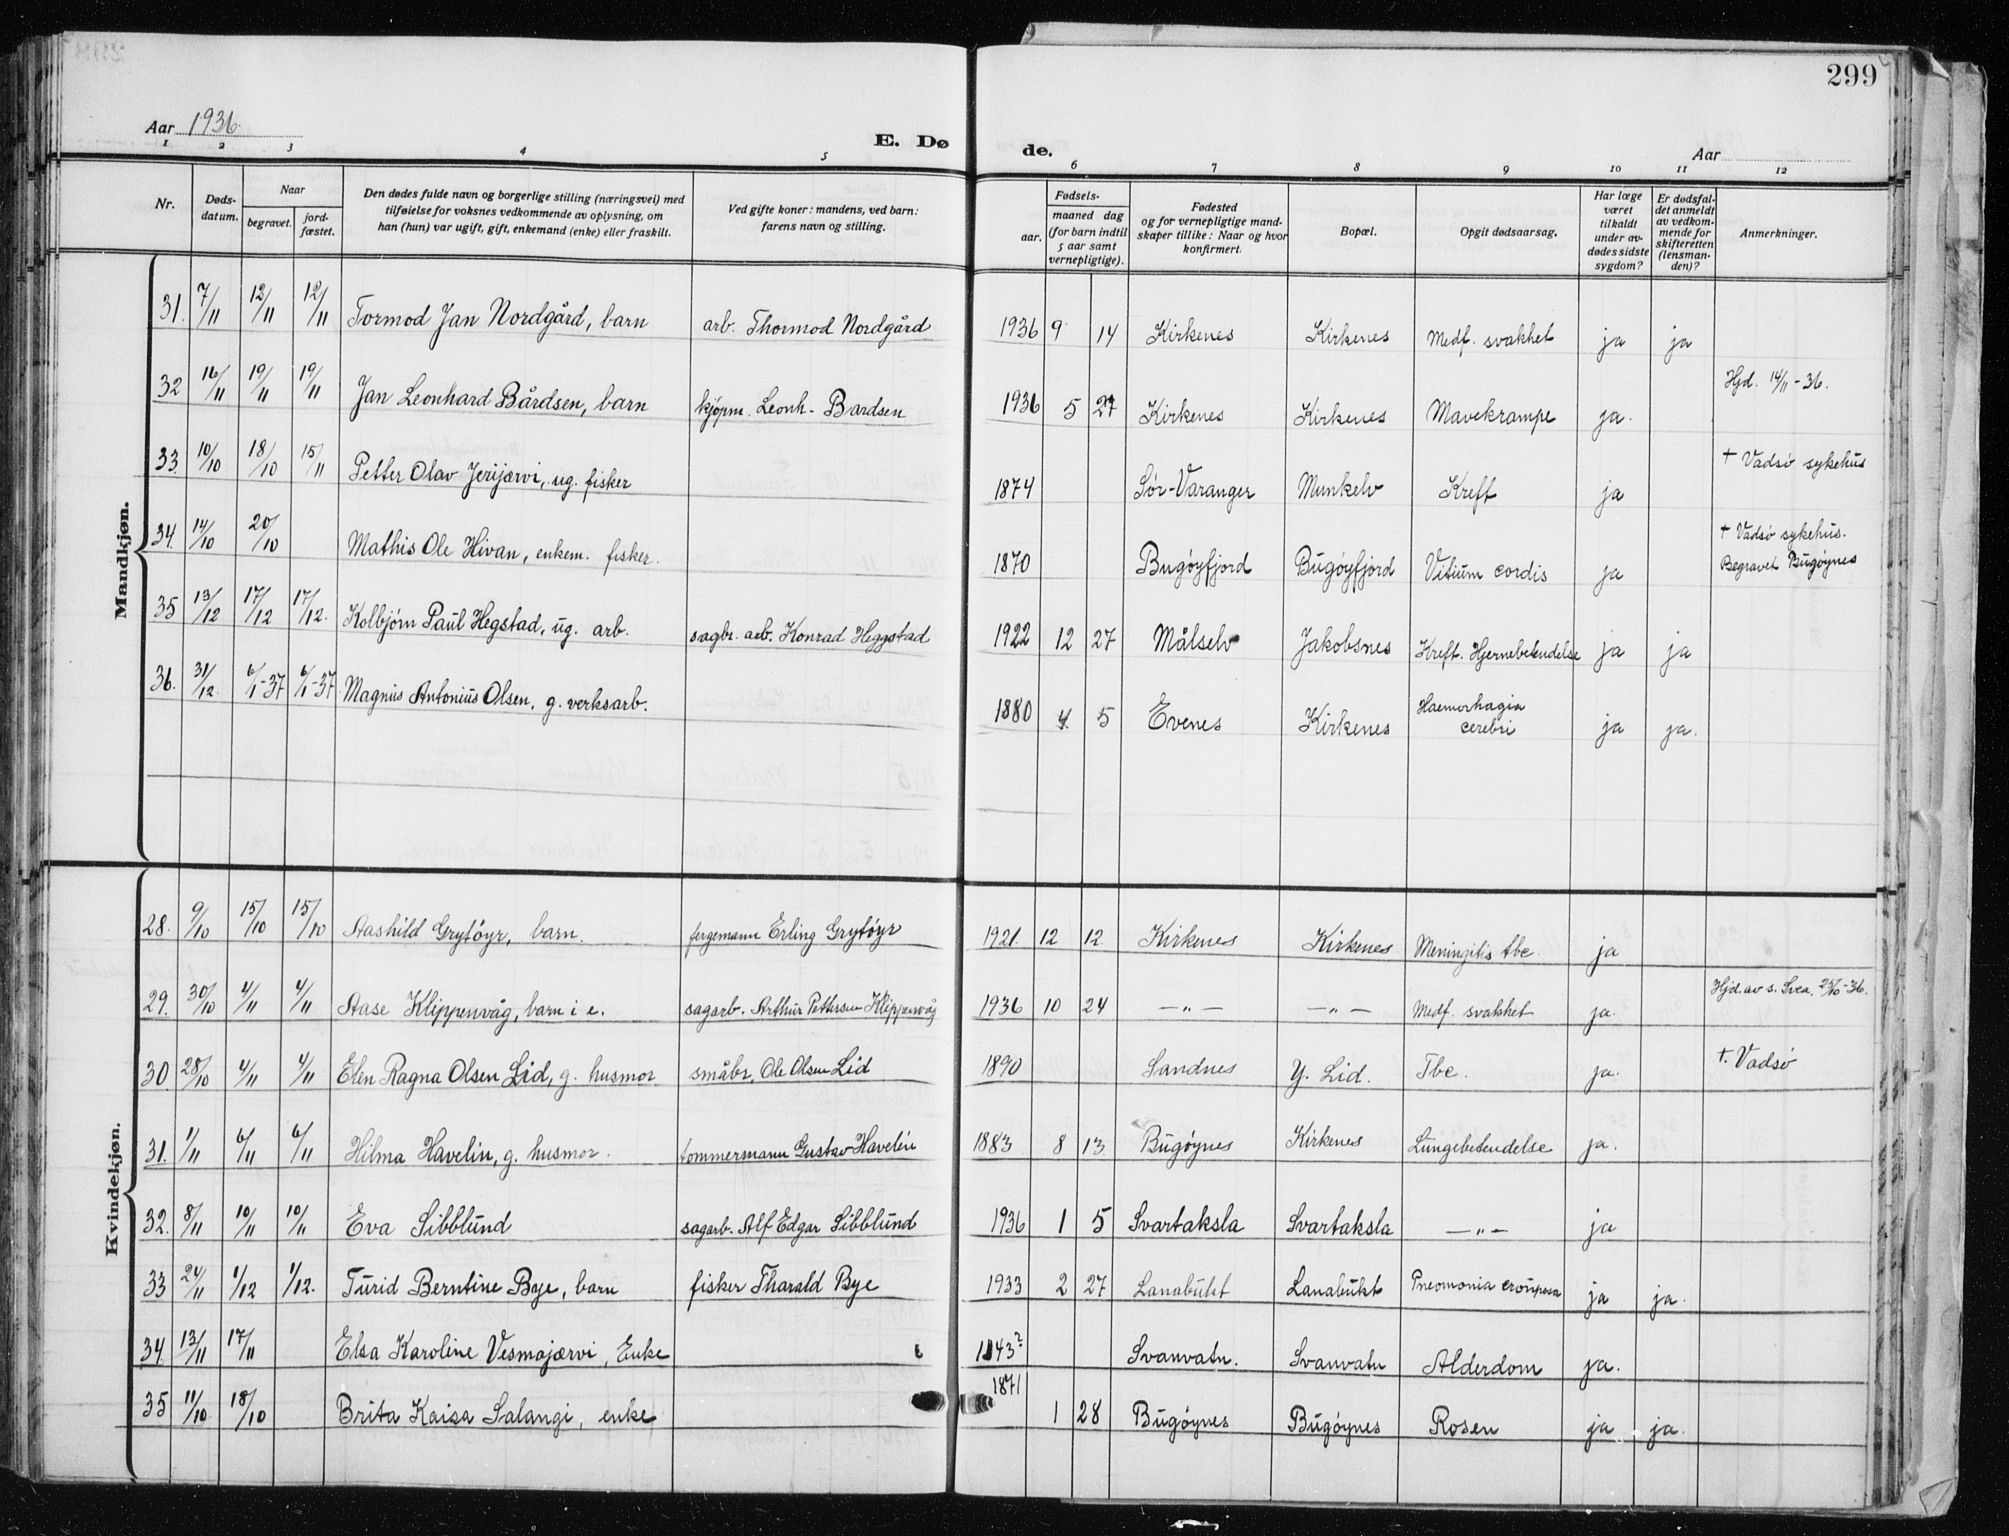 299
Aar 1936.
E. Døde.
Aar
1 2 3 4 5 6 7 8 9 10 11 12
Nr.
Døds-datum.
Naar
begravet.
jord-fæstet.
Den dødes fulde navn og borgerlige stilling (næringsvei) med
tilføielse for voksnes vedkommende av oplysning, om
han (hun) var ugift, gift, enkemand (enke) eller fraskilt.
Ved gifte koner: mandens, ved barn:
farens navn og stilling.
Fødsels-
aar.
maaned dag
(for barn indtil
5 aar samt
vernepligtige).
Fødested
og for vernepligtige mand-
skaper tillike: Naar og hvor
konfirmert.
Bopæl.
Opgit dødsaarsag.
Har læge
været
tilkaldt
under av-
dødes sidste
sygdom?
Er dødsfal-
det anmeldt
av vedkom-
mende for
skifteretten
(lensman-
den)?
Anmerkninger.
Mandkjøn.
31. 7/11 12/11 12/11 Tormod Jan Nordgård, barn arb. Thormod Nordgård 1936 9 14 Kirkenes Kirkenes Medf. svakhet ja ja
32 16/11 19/11 19/11 Jan Leonhard Bårdsen, barn kjøpm. Leonh. Bardsen 1936 5 27 Kirkenes Kirkenes Mavekrampe ja. Hjd. 14/11-36.
33. 10/10 18/10 15/11 Petter Olav Jerijærvi, ug. fisker 1874 Sør-Varanger Munkelv Kreft ja † Vadsø sykehus
34. 14/10 20/10 Mathis Ole Hivan, enkem. fisker. 1870 Bugøyfjord Bugøyfjord Vitium cordis ja † Vadsø sykehus.
Begravet Bugøynes
35 13/12 17/12 17/12. Kolbjørn Paul Hegstad, ug. arb. sagbr. arb. Konrad Heggstad 1922 12 27 Målselv Jakobsnes Kreft. Hjernebetendelse ja ja
36. 31/12. 6/1-37 6/1-37. Magnus Antonius Olsen, g. verksarb. 1880 4 5 Evenes Kirkenes Haemorhagia
cerebri ja ja.
Kvindekjøn.
28. 9/10 15/10 15/10 Aashild Grytøyr, barn. fergemann Erling Grytøyr 1921. 12 12. Kirkenes Kirkenes Meningitis tbc. ja
29. 30/10 4/11 4/11 Aase Klippenvåg, barn i e. sagarb. Arthur Pettersen Klippenvåg 1936 10 24 —"— —"— Medf. svakhet ja. Hjd. av s. Svea, 25/10-36.
30. 28/10 4/11 4/11 Elen Ragna Olsen Lid, g. husmor småbr. Ole Olsen Lid 1890 Sandnes Y. Lid. Tbc. ja. †. Vadsø
31. 1/11 6/11 6/11 Hilma Havelin, g. husmor. tømmermann Gustav Havelin 1883 8 13. Bugøynes Kirkenes Lungebetendelse ja.
32. 8/11 10/11 10/11 Eva Sibblund sagarb. Alf Edgar Sibblund 1936 1 5 Svartaksla Svartaksla —"— ja
33 24/11 1/12 1/12. Turid Berntine Bye, barn fisker Tharald Bye 1933 2 27 Lanabukt Lanabukt Pneomonia crouposa ja ja.
34. 13/11 17/11 Elsa Karoline Vesmajærvi, Enke 1843? Svanvatn. Svanvatn Alderdom ja.
35 11/10 18/10 Brita Kaisa Salangi, enke 1871 1 28 Bugøynes Bugøynes Rosen ja ja.